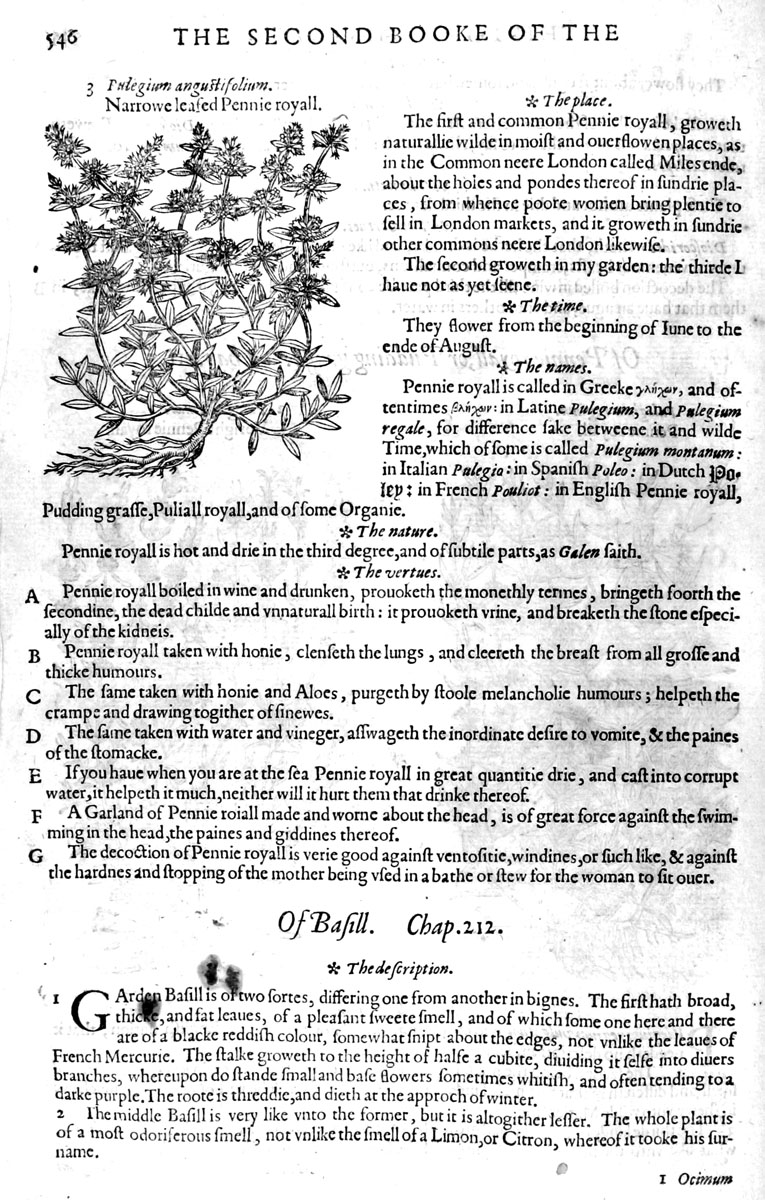 546
THE SECOND BOOKE OF THE
3 Pulegium anguſtifolium.
Narrowe leafed Pennie royall.
✻ The place.
The firſt and common Pennie royall, groweth
naturallie wilde in moiſt and ouerflowen places, as
in the Common neere London called Miles ende,
about the holes and pondes thereof in ſundrie pla-
ces, from whence poore women bring plentie to
ſell in London markets, and it groweth in ſundrie
other commons neere London likewiſe.
The ſecond groweth in my garden: the thirde I
haue not as yet ſeene.
✻ The time.
They flower from the beginning of Iune to the
ende of Auguſt.
✻ The names.
Pennie royall is called in Greeke γλήχων, and of-
tentimes βλήχων: in Latine Pulegium, and Pulegium
regale, for difference ſake betweene it and wilde
Time, which of ſome is called Pulegium montanum:
in Italian Pulegio: in Spaniſh Poleo: in Dutch Po-
ley: in French Pouliot: in Engliſh Pennie royall,
Pudding graſſe, Puliall royall, and of ſome Organie.
✻ The nature.
Pennie royall is hot and drie in the third degree, and of ſubtile parts, as Galen ſaith.
✻ The vertues.
A Pennie royall boiled in wine and drunken, prouoketh the monethly termes, bringeth foorth the
ſecondine, the dead childe and vnnaturall birth: it prouoketh vrine, and breaketh the ſtone eſpeci-
ally of the kidneis.
B Pennie royall taken with honie, clenſeth the lungs, and cleereth the breaſt from all groſſe and
thicke humours.
C The ſame taken with honie and Aloes, purgeth by ſtoole melancholie humours; helpeth the
crampe and drawing togither of ſinewes.
D The ſame taken with water and vineger, aſſwageth the inordinate deſire to vomite, & the paines
of the ſtomacke.
E If you haue when you are at the ſea Pennie royall in great quantitie drie, and caſt into corrupt
water, it helpeth it much, neither will it hurt them that drinke thereof.
F A Garland of Pennie roiall made and worne about the head, is of great force againſt the ſwim-
ming in the head, the paines and giddines thereof.
G The decoction of Pennie royall is verie good againſt ventoſitie, windines, or ſuch like, & againſt
the hardnes and ſtopping of the mother being vſed in a bathe or ſtew for the woman to ſit ouer.
Of Baſill. Chap. 212.
✻ The deſcription.
1 GArden Baſill is of two ſortes, differing one from another in bignes. The firſt hath broad,
thicke, and fat leaues, of a pleaſant ſweete ſmell, and of which ſome one here and there
are of a blacke reddiſh colour, ſomewhat ſnipt about the edges, not vnlike the leaues of
French Mercurie. The ſtalke groweth to the height of halfe a cubite, diuiding it ſelfe into diuers
branches, whereupon do ſtande ſmall and baſe flowers ſometimes whitiſh, and often tending to a
darke purple. The roote is threddie, and dieth at the approch of winter.
2 The middle Baſill is very like vnto the former, but it is altogither leſſer. The whole plant is
of a moſt odoriferous ſmell, not vnlike the ſmell of a Limon, or Citron, whereof it tooke his ſur-
name.
1 Ocimum